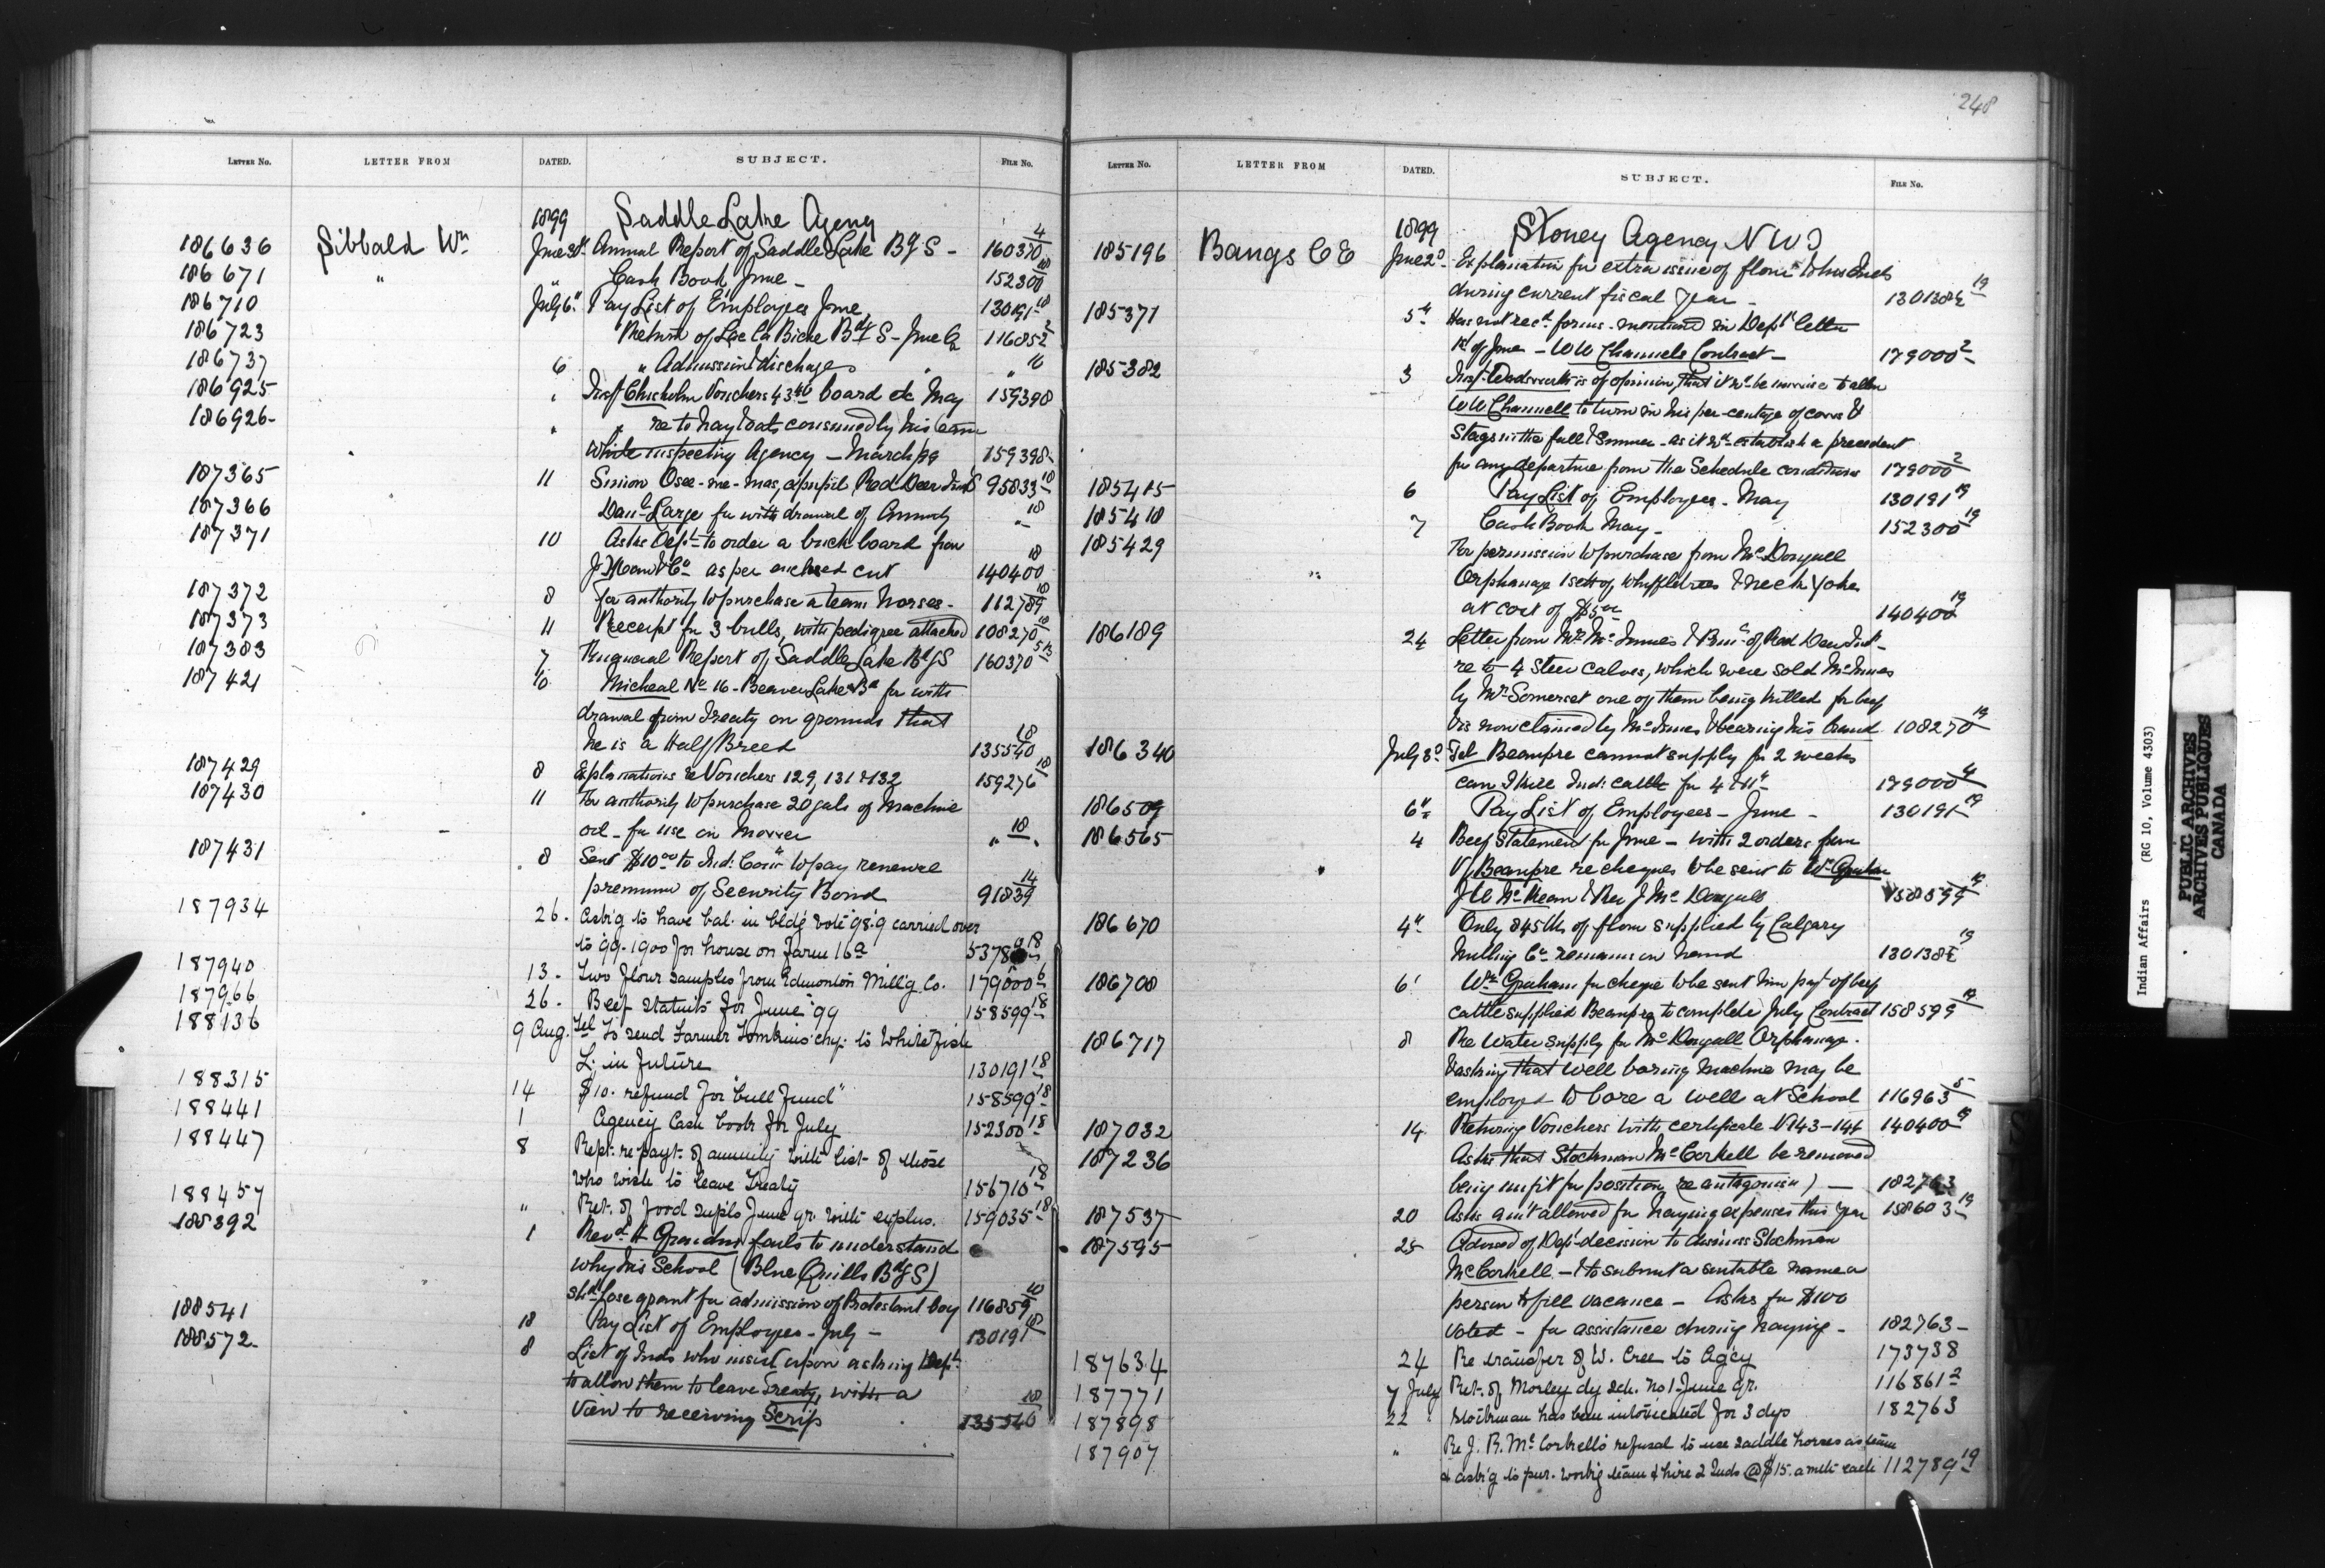 248
LETTER NO. LETTER FROM DATED. SUBJECT. FILE NO.
1899 Saddle Lake Agency
186636 Sibbald Wm June 30th Annual Report of Saddle Lake Bdg S - 160370 4
186671 " " Cash Book June - 152300 18
186710 July 6" Pay List of Employees June 130191 18
186723 Return of Lac La Biche Bdg S - June Qr 116852 2
186737 6 " Admission & discharge " " 16
186925 " Insp Chisholm Vouchers 43.40 board &c May 159398
186926 " " re to hay & oats consumed by his team
while inspecting Agency - March 99 159398
187365 11 Simion Osee-me-mas, a pupil Red Deer Inds 95833 18
187366 Danl Large for withdrawal of Annuity " 18
187371 10 Asks Dept to order a buckboard from
& Co as per enclosed cut 140400 18
187372 8 For authority to purchase a team horses - 112789 18
187373 11 Receipt for 3 bulls, with pedigree attached 108270 18
187383 7 Report of Saddle Lake Bdg S 160370
187421 10 Micheal No 16 - Beaver Lake Bd for with
drawal from Treaty on grounds that
he is a Half Breed 135540 18
187429 8 Explanations re Vouchers 129, 131 & 132 159276 18
187430 11 For authority to purchase 20 gals of Machine
oil - for use on Mower " 18
187431 8 Sent $10.00 to Ind: Comr to pay renewal
premium of Security Bond 91839 14
187934 26. Askg to have bal. in bldg vote '98.9 carried over
to '99-1900 for house on Farm 16a 18
187940 13. Two flour samples from Edmonton Mill'g Co. 179000 6
187966 26. Beef statmts for June '99 158599 18
188136 9 Aug. Tel To send Farmer Tomkins' chq. to Whitefish
L. in future 130191 18
188315 14 $10. refund for "bull fund" 158599 18
188441 1 Agency Cash book for July 152300 18
188447 8 Rept. re payt. of annuity with list of those
who wish to leave Treaty 156710 18
188457 " Ret. of food supls June qr. with explns. 159035 18
188392 1 Revd H Grandin fails to understand
why his School (Blue Quills Bdg S)
shd lose grant for admission of Protestant boy 116859 10
188541 18 Pay List of Employees - July - 130191 18
188572 8 List of Inds who insist upon asking Dept
to allow them to leave Treaty, with a
view to receiving Scrip 135540 18
LETTER NO. LETTER FROM DATED. SUBJECT. FILE NO.
1899 Stoney Agency N W T
185196 Bangs C E June 2d Explanation for extra issue of flour to his Inds
during current fiscal year - 130138 19
185371 5th Has not recd forms - mentioned in Dept letter
1st of June - W W Channels Contract - 179000 2
185382 3 Insp. Wadsworth is of opinion, that it wd be unwise to allow
W W Channell to turn in his per-centage of cows &
Stags in the fall & Summer - as it wd establish a precedent
for any departure from the Schedule conditions 179000 2
185415 6 Pay List of Employees - May 130191 19
185418 7 Cash Book May - 152300 19
185429 For permission to purchase from McDougall
" Orphanage 1 sett of Whiffletrees & Neck Yoke
at cost of $5.00 140400 19
186189 24 Letter from Mr McInnes & Prin: of Red Deer Inst -
re to 4 Steer calves, which were sold McInnes
by Mr Somerset one of them being killed for beef
& is now claimed by McInnes & bearing his brand 108270 19
186340 July 3d Tel Beaupre cannot supply for 2 weeks
can I hire Ind: cattle for 4 & 11th 179000 4
186509 6th Pay List of Employees - June - 130191 19
186565 4 Beef Statement for June - with 2 orders from
V Beaupre re cheques to be sent to Wm Graham
Mc Kean & Rev J McDougall 158599 19
186670 4th Only 845 lbs of flour supplied by Calgary
Milling Co remains on hand 130138 19
186708 6' Wm Graham for cheque to be sent him payt of beef
cattle supplied Beaupre to complete July Contract 158599 19
186717 8 Re Water supply for McDougall Orphanage.
& asking that well boring Machine may be
employed to bore a well at School 116963 5
187032 14 Returing Vouchers with certificate V143-144 140400 19
187236 Asks that Stockman McCorkell be removed
being unfit for position (re antagonism) - 182763
187537 20 Asks amt allowed for haying expenses this year 158603 19
187595 25 Advised of Dept decision to dismiss Stockman
McCorkell - & to submit a suitable name or
person to fill vacance - Asks for $100
voted - for assistance during haying - 182763 -
187634 24 Re transfer of W. Cree to Agcy 173738
187771 7 July Ret. of Morley dy sch. No 1 June qr. 116861 2
187898 22 Stockman has been intoxicated for 3 dys 182763
187907 " Re J. R. McCorkell's refusal to use saddle horses as team
& askg to pur. workg team & hire 2 Inds @ $15. a mth each 112789 19
Indian Affairs (RG 10, Volume 4303)
PUBLIC ARCHIVES
ARCHIVES PUBLIQUES
CANADA